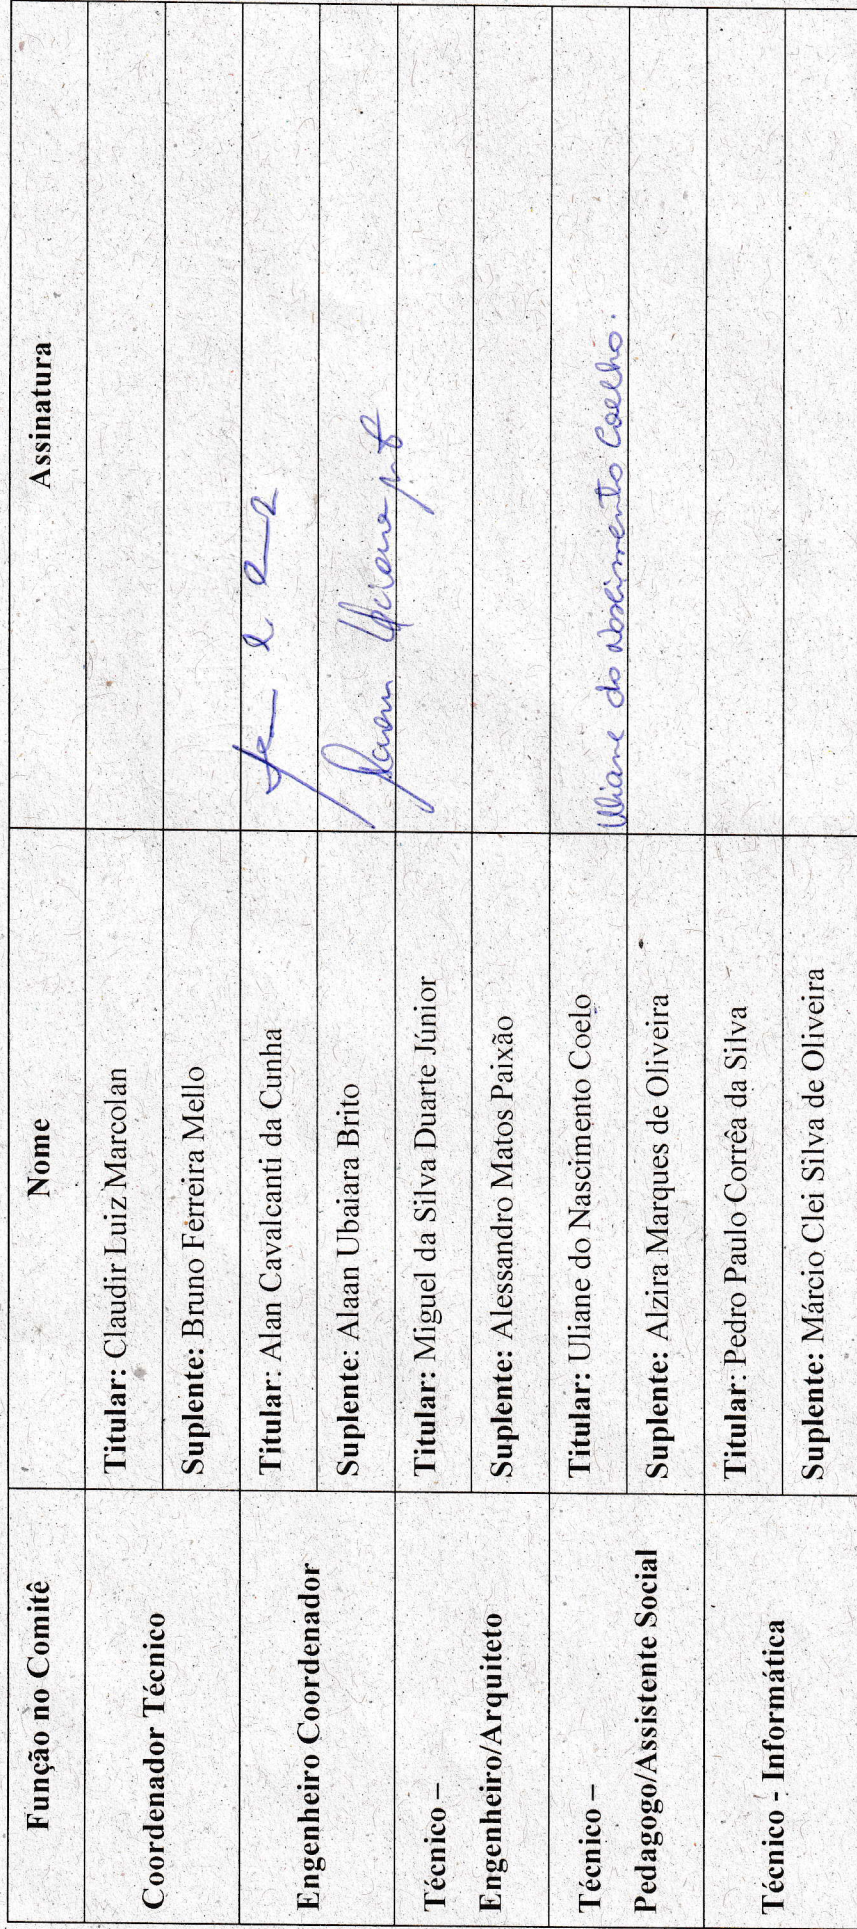 Função no Comitê Nome Assinatura
Coordenador Técnico
Titular: Claudir Luiz Marcolan
Suplente: Bruno Ferreira Mello
Engenheiro Coordenador
Titular: Alan Cavalcanti da Cunha
Suplente: Alaan Ubaiara Brito
Técnico –
Engenheiro/Arquiteto
Titular: Miguel da Silva Duarte Júnior
Suplente: Alessandro Matos Paixão
Técnico –
Pedagogo/Assistente Social
Titular: Uliane do Nascimento Coelo
Uliane do Nascimento Coelho.
Suplente: Alzira Marques de Oliveira
Técnico - Informática
Titular: Pedro Paulo Corrêa da Silva
Suplente: Márcio Clei Silva de Oliveira